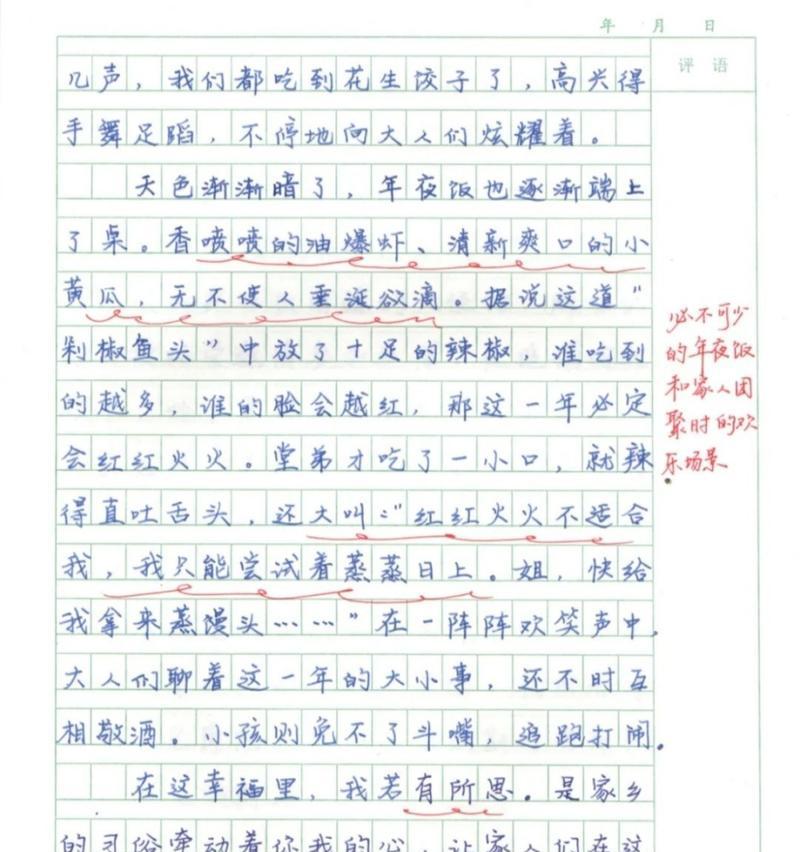 年 月 日
评 语
几声，我们都吃到花生饺子了，高兴得
手舞足蹈，不停地向大人们炫耀着。
天色渐渐暗了，年夜饭也逐渐端上
了桌。香喷喷的油爆虾、清新爽口的小
黄瓜，无不使人垂涎欲滴。据说这道“
剁椒鱼头”中放了十足的辣椒，谁吃到
的越多，谁的脸会越红，那这一年必定
会红红火火。堂弟才吃了一小口，就辣
得直吐舌头，还大叫：“红红火火不适合
我，我只能尝试着蒸蒸日上。姐，快给
我拿来蒸馒头……”在一阵阵欢笑声中，
大人们聊着这一年的大小事，还不时互
相敬酒。小孩则免不了斗嘴，追跑打闹。
在这幸福里，我若有所思。是家乡
的习俗牵动着你我的心，让家人们在这
必不可少
的年夜饭
和家人团
聚时的欢
乐场景